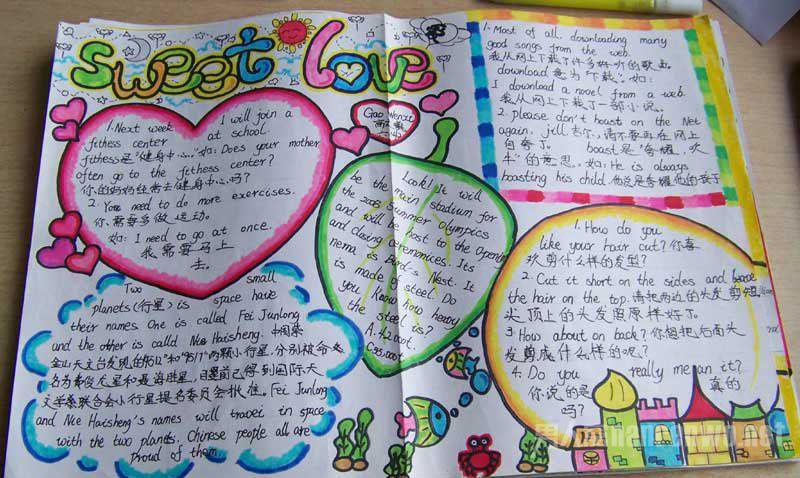 sweet love
1. Next week I will join a
fithess center at school.
fithess是"健身中心。"如: Does your mother
often go to the fithess center?
你的妈妈经常去健身中心吗?
2. You need to do more exercises.
你需要多做运动。
如: I need to go at once.
我需要马上
去。
Gao Wenzi
Look! It will
be the main stadium for
the 2008 Summer Olympics
and will be host to the Opening
and closing ceremonices. Its
nema is Bird's Nest. It
is made of steel. Do
you know how heavy
the steel is?
A. 42000t.
C. 35000t.
1. Most of all. downloading many
good songs from the web.
我从网上下载了许多好听的歌曲
download 意为"下载"。如:
I download a novel from a web.
我从网上下载了一部小说。
2. please don't boast on the Net
again, jill 吉尔,请不要再在网上
自夸了。 boast是"夸耀、吹
牛"的意思。如: He is always
boasting his child. 他总是夸耀他的孩子
Two small
planets (行星) is space have
their names One is called Fei Junlong
and the other is called Nie Haisheng. 中国紫
金山天文台发现的"9512"和"9517"两颗小行星,分别被命
名为费俊龙星和聂海胜星,目前已得到国际天
文学联合会小行星提名委员会批准。Fei Junlong
and Nie Haisheng's names will travei in space
with the two planets. Chinese people all are
proud of them
1. How do you
like your hair cut? 你喜
欢剪什么样的发型?
2. Cut it short on the sides and
the hair on the top. 请把两边的头发剪短
头顶上的头发照原样好了。
3. How about on back? 你想把后面头
发剪成什么样的呢?
4. Do you really mean it?
你说的是 真的
吗?